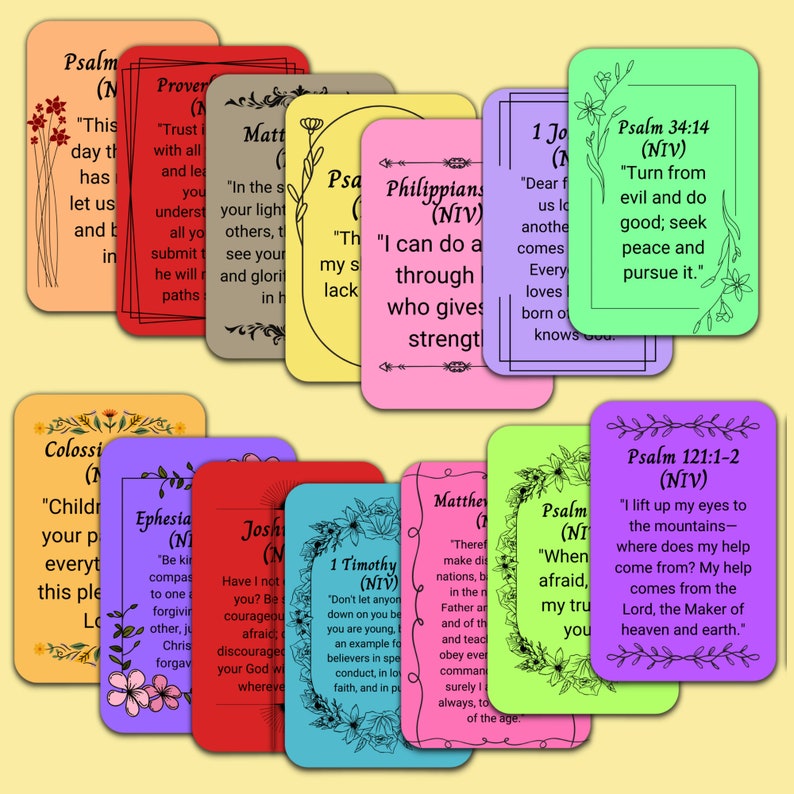 Psalm
(NI
"This
day th
has
let us
and b
in
Prover
(N
"Trust i
with all
and lea
you
underst
all you
submit t
he will
paths
Matt
(
"In the s
your light
others, th
see your
and glorif
in h
Psa
(
"Th
my s
lack
Philippians
(NIV)
"I can do a
through
who gives
strength
1 Jo
(N
"Dear f
us lo
anothe
comes
Everyo
loves
born of
knows God.
Psalm 34:14
(NIV)
"Turn from
evil and do
good; seek
peace and
pursue it."
Colossi
(N
"Childr
your pa
everyt
this ple
Lo
Ephesia
(NI
"Be kin
compas
to one a
forgivin
other, ju
Christ
forgav
Joshu
(N
Have I not
you? Be s
courageou
afraid; d
discouraged
your God wi
wherever
1 Timothy
(NIV)
"Don't let anyon
down on you be
you are young, b
an example fo
believers in spee
conduct, in lov
faith, and in pu
Matthew
(N
"Theref
make dis
nations, ba
in the n
Father an
and of th
and teach
obey ever
command
surely I a
always, to
of the age."
Psalm
(NIV
"When
afraid,
my tru
you
Psalm 121:1-2
(NIV)
"I lift up my eyes to
the mountains—
where does my help
come from? My help
comes from the
Lord, the Maker of
heaven and earth."